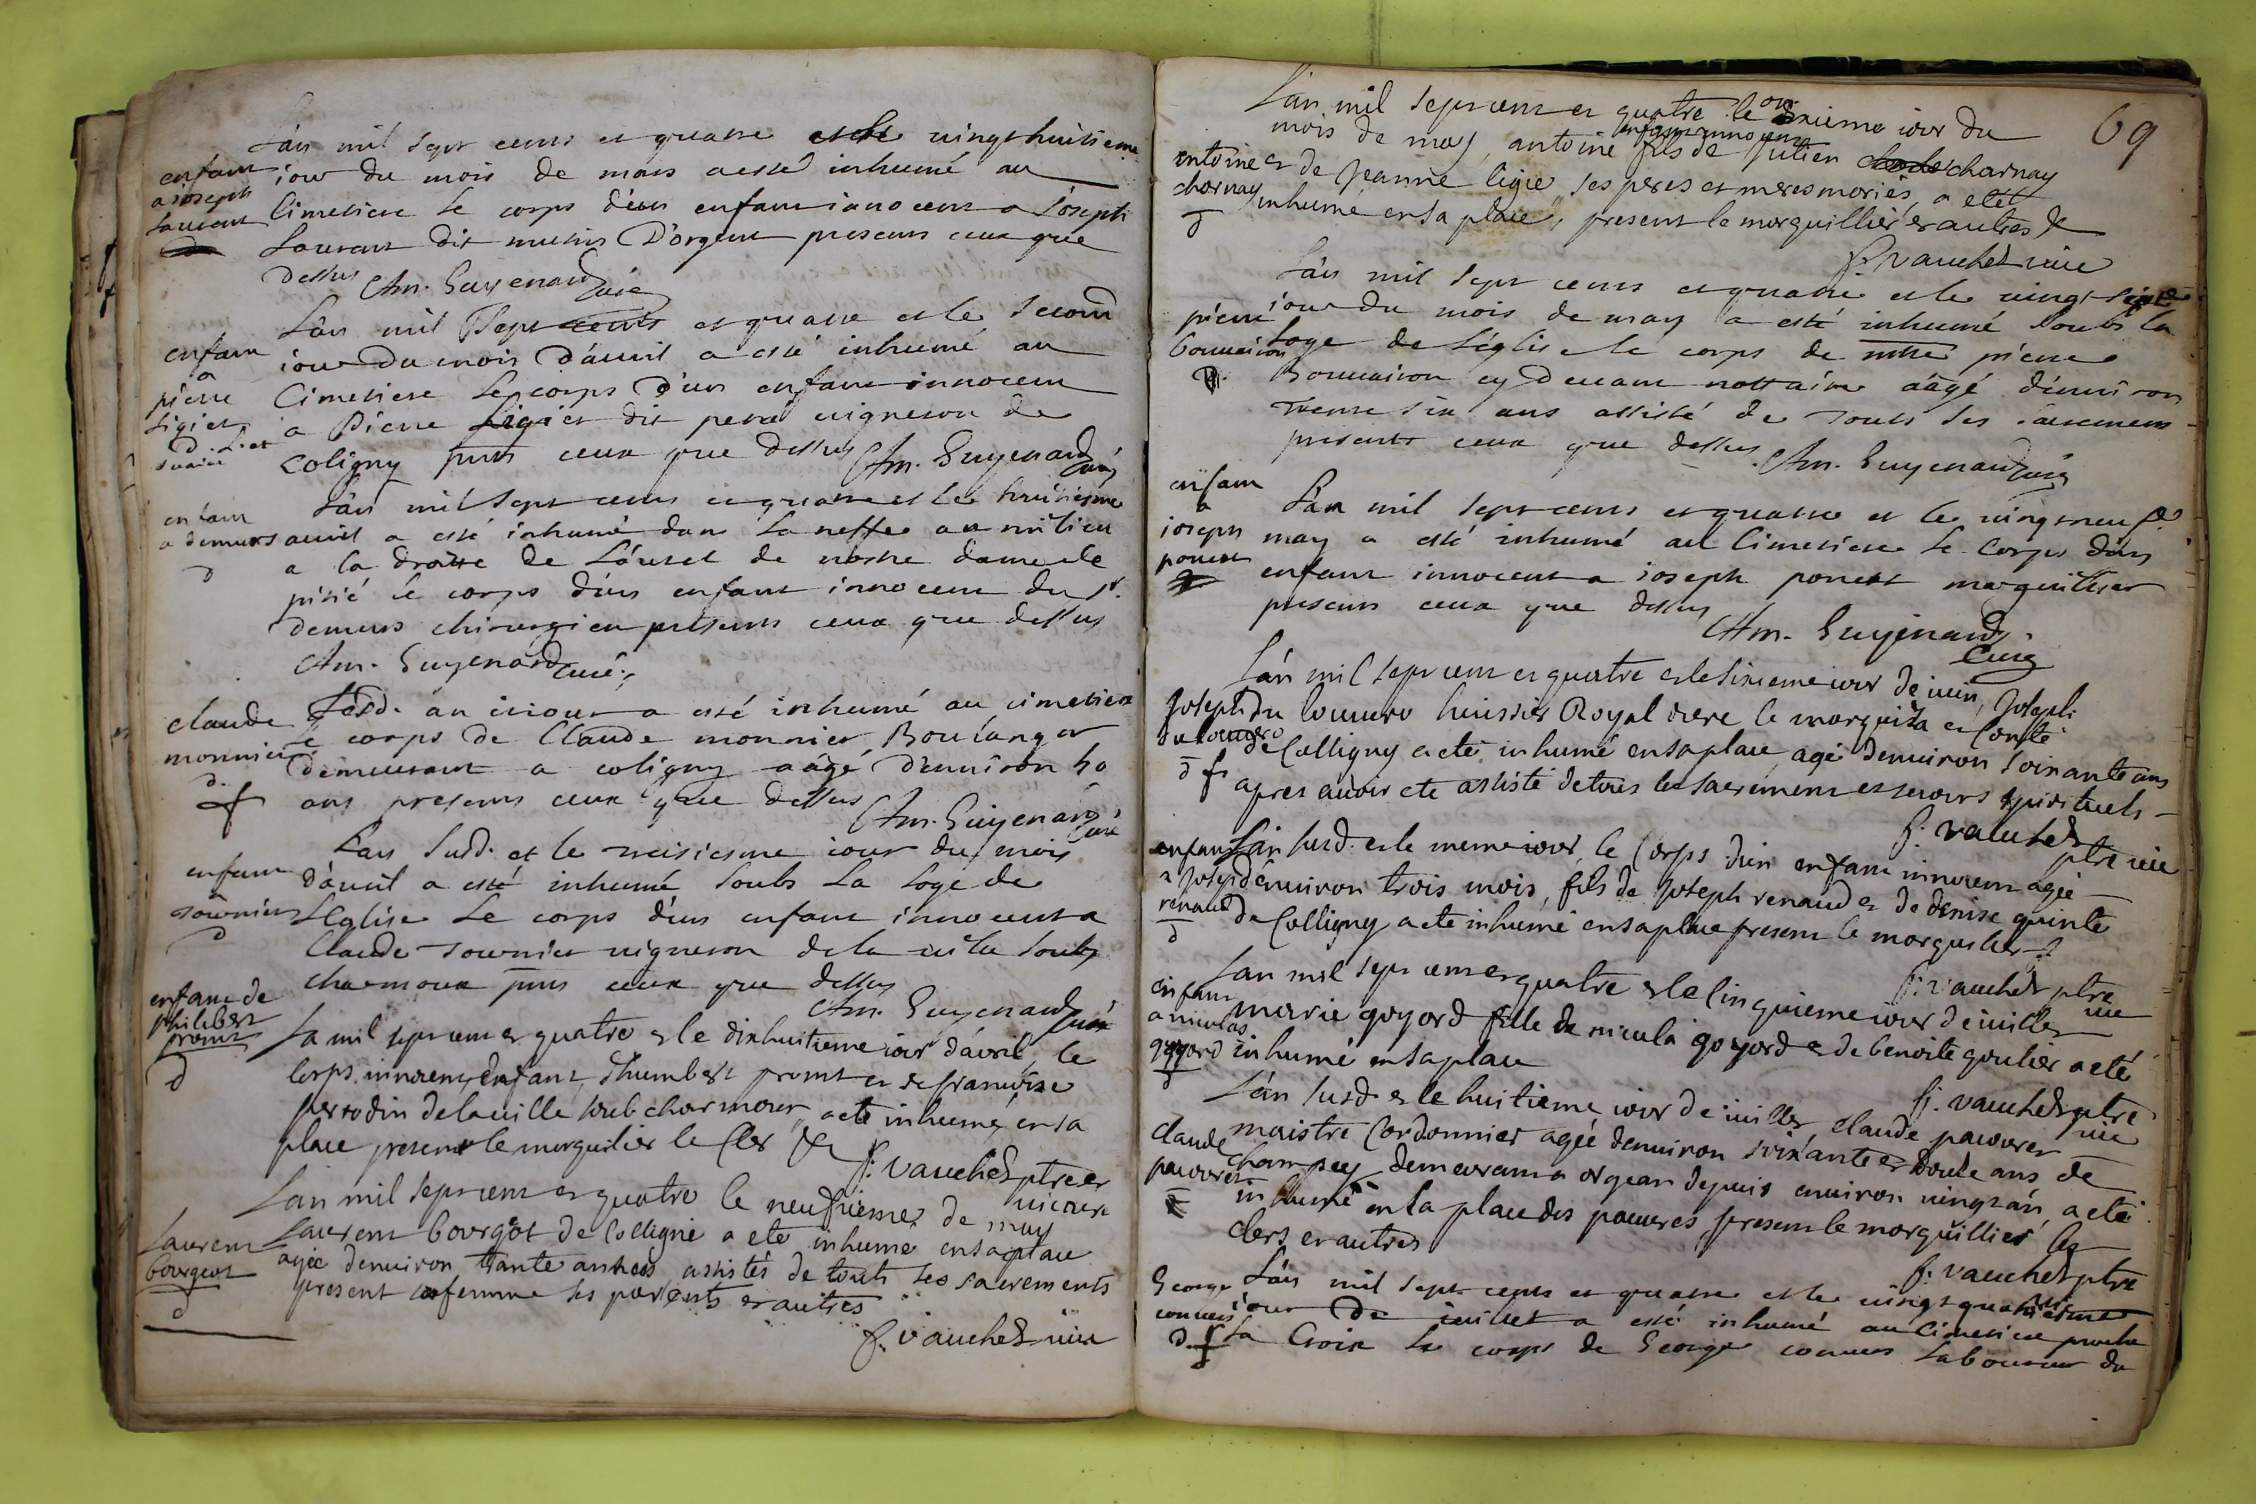 enfant
a joseph
Laurent
L'an mil sept cents et quatre et le vingt huitiesme
jour du mois de mars a esté inhumé au
Cimetiere le corps d'un enfant innocent a Joseph
Laurent dit D'orgent presents ceux que
dessus Am. Guyenard curé
enfant
a
pierre
Ligier
d.
L'an mil sept cents et quatre et le second
jour du mois d'avril a esté inhumé au
Cimetiere le corps d'un enfant innocent
a Pierre Ligier dit vigneron de
Coligny pnts ceux que dessus Am. Guyenard curé
enfant
a demurs
d
L'an mil sept cents et quatre et le huitiesme
avril a esté inhumé dans la neffe au milieu
a la droitte de L'autel de nostre dame de
pitié le corps d'un enfant innocent du sr.
demurs chirurgien presents ceux que dessus
Am. Guyenard curé
claude
monnier
d.
f
Lesd. an et jour a esté inhumé au cimetiere
le corps de Claude monnier Boulanger
demeurant a coligny aâgé d'environ 40
ans presents ceux que dessus Am. Guyenard curé
enfant
a
tournier
d
L'an susd. et le treisiesme jour du mois
d'avril a esté inhumé soubs la loge de
L'Eglise le corps d'un enfant innocent a
Claude tournier vigneron de la ville soubs
charmoux pnts ceux que dessus
Am. Guyenard curé
enfant de
philibert
promt
d
La mil sept cent et quatre et le dixhuitieme jour d'avril, le
Corps innocent, enfant d'humbert promt et de francoise
perrodin de la ville soub charmoux, a eté inhumé en sa
place present le marguilier le Cler &
f: vauchet ptre et
vicaire
Laurent
bourgeot
d
L'an mil sept cent et quatre le neufvieme de may
Laurent bourgeot de Colligni a eté inhumé en sa place
agée denviron trante années assistés de touts les sacrements
present sa femme ses parents et autres
f: vauchet vic
69
antoine
charnay
d
L'an mil sept cent et quatre le onzieme jour du
mois de may, antoine enfant innocent fils de Julien charnay
et de Jeanne ligié, ses peres et meres mariés, a eté
inhumé en sa place, present le marguillier et autres &
f: vauchet vic
pierre
Bouvairon
d.
L'an mil sept cents et quatre et le vingt sixie
jour du mois de may a esté inhumé soubs la
loge de L'église le corps de mtre pierre
Bouvairon cy devant nottaire aâgé d'environ
trente six ans assisté de touts ses sacremens
presents ceux que dessus. Am. Guyenard curé
enfant
a
joseph
ponest
L'an mil sept cents et quatre et le vingt neufe
may a esté inhumé au Cimetiere le Corps d'un
enfant innocent a joseph ponest marguillier
presents ceux que dessus
Am. Guyenard
Curé
Joseph
du
d f
L'an mil sept cent et quatre et le sixieme jour de juin, Joseph
Du huissier Royal riere le marquiza et Conté
de Colligny a eté inhumé en sa place, agé denviron soixante ans
apres avoir eté assisté de tous les sacrements et secours spirituels
f: vauchet
ptre vic
enfant
a Joseph
renaud
d
L'an susd. et le meme jour, le Corps d'un enfant innocent agée
denviron trois mois, fils de Joseph renaud et de denise quinte
de Colligny a eté inhumé en sa place present le marguilier &
f: vauchet ptre
vic
enfant
a nicolas
goyord
d
L'an mil sept cent et quatre et le Cinquieme jour de juillet
marie goyord fille de nicola goyord et de benoite goulier a eté
inhumé en sa place
f: vauchet ptre
vic
claude
L'an susd. et le huitieme jour de juillet claude
maistre Cordonnier agée denviron soixante et douze ans de
champey demeurant a orgean depuis environ vingt an, a eté
inhumé en la place des pauvres, present le marguillier les
clers et autres
f: vauchet ptre
George
convers
d. f
L'an mil sept cents et quatre et le vingt quatriesme
jour de juillet a esté inhumé au Cimetiere proche
la Croix le corps de George convers laboureur du